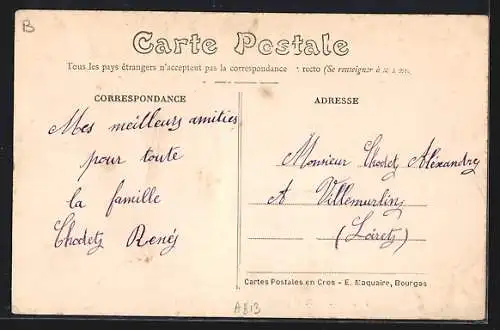 B
Carte Postale
Tous les pays étrangers n'acceptent pas la correspondance recto (Se renseigner à
CORRESPONDANCE
Mes meilleurs amitiés
pour toute
la famille
Chodetz René
ADRESSE
Monsieur Chodetz Alexandre
A Villemurlin
(Loiret)
Cartes Postales en Gros - E. Maquaire, Bourges
A813